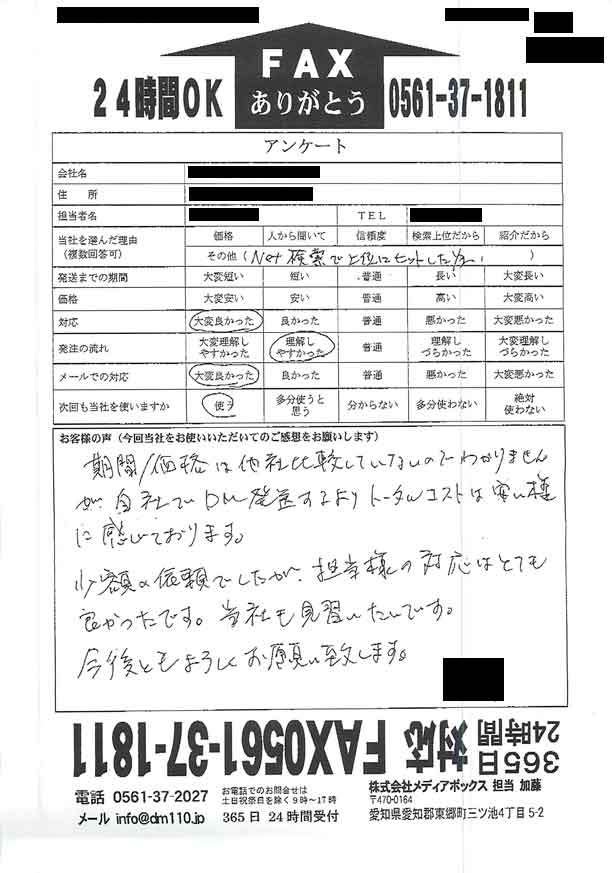 FAX
ありがとう
24時間OK
0561-37-1811
アンケート
会社名
住 所
担当者名 TEL
当社を選んだ理由(複数回答可) 価格 人から聞いて 信頼度 検索上位だから 紹介だから
その他(Net検索で上位にヒットした為。)
発送までの期間 大変短い 短い 普通 長い 大変長い
価格 大変安い 安い 普通 高い 大変高い
対応 大変良かった 良かった 普通 悪かった 大変悪かった
発注の流れ 大変理解しやすかった 理解しやすかった 普通 理解しづらかった 大変理解しづらかった
メールでの対応 大変良かった 良かった 普通 悪かった 大変悪かった
次回も当社を使いますか 使う 多分使うと思う 分からない 多分使わない 絶対使わない
お客様の声(今回当社をお使いいただいてのご感想をお願いします)
期間/価格は他社比較していないのでわかりません
が、自社でDM発送するよりトータルコストは安い様
に感じております。
少額の依頼でしたが、担当様の対応はとても
良かったです。当社も見習いたいです。
今後ともよろしくお願い致します。
365日24時間対応 FAX0561-37-1811
電話 0561-37-2027
メール info@dm110.jp
お電話でのお問合せは
土日祝祭日を除く9時～17時
365日 24時間受付
株式会社メディアボックス 担当 加藤
〒470-0164
愛知県愛知郡東郷町三ツ池4丁目5-2